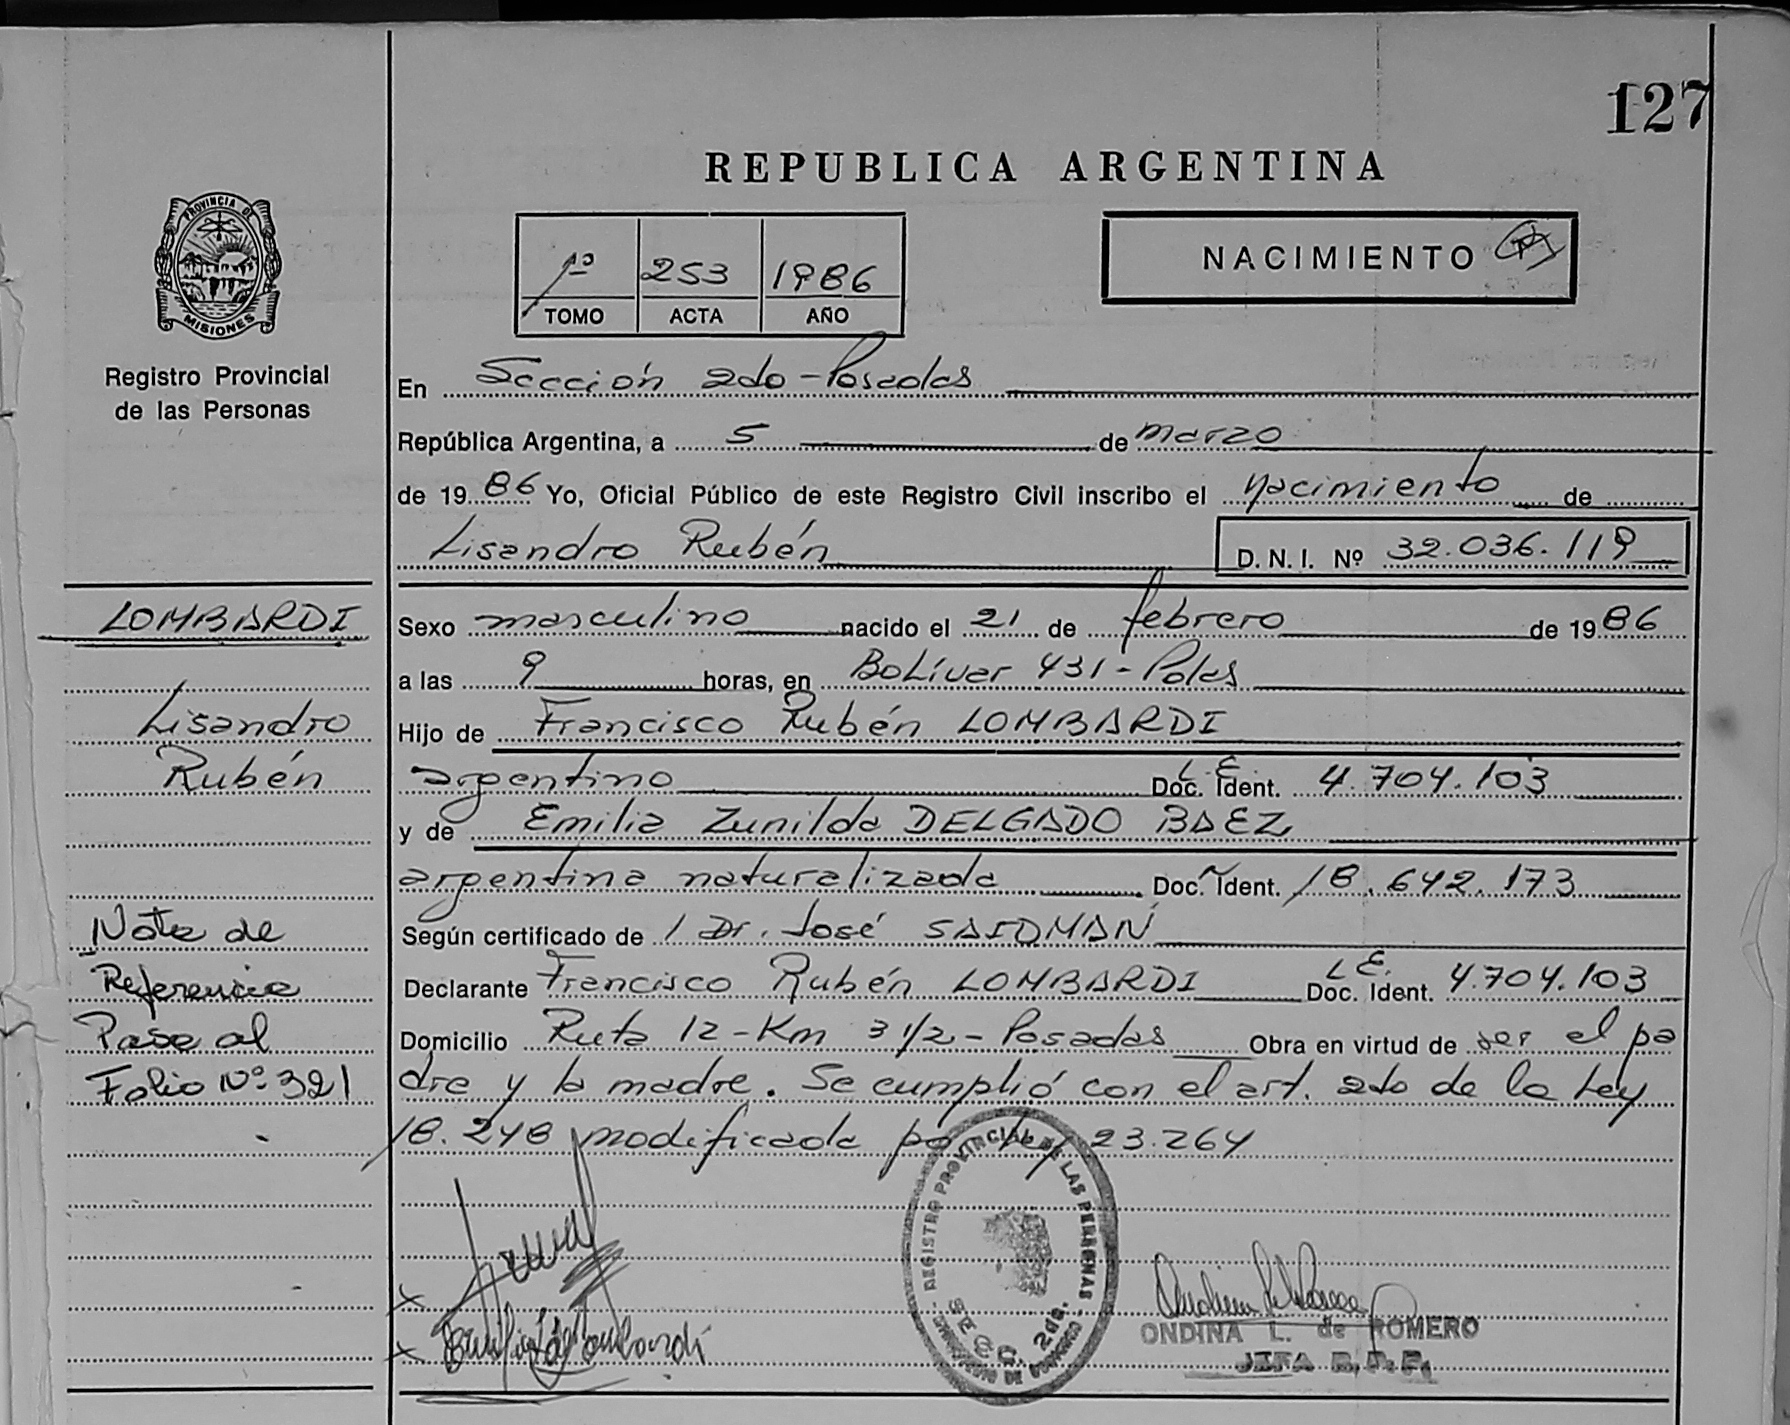 127
REPUBLICA ARGENTINA
PROVINCIA DE
MISIONES
Registro Provincial
de las Personas
1º 253 1986
TOMO ACTA AÑO
NACIMIENTO
En Sección 2da-Posadas
República Argentina, a 5 de marzo
de 1986 Yo, Oficial Público de este Registro Civil inscribo el nacimiento de
Lisandro Rubén D.N.I. Nº 32.036.119
LOMBARDI
Lisandro
Rubén
Sexo masculino nacido el 21 de febrero de 1986
a las 9 horas, en Bolívar 431-Pdas
Hijo de Francisco Rubén LOMBARDI
argentino L.E. Doc. Ident. 4.704.103
y de Emilia Zunilda DELGADO BAEZ
argentina naturalizada Doc. Ident. 18.642.173
Según certificado de 1 Dr. José SAIDMAN
Declarante Francisco Rubén LOMBARDI L.E. Doc. Ident. 4.704.103
Domicilio Ruta 12-Km 3 1/2-Posadas Obra en virtud de ser el pa
dre y la madre. Se cumplió con el art. 2do de la Ley
18.248 modificada por Ley 23.264
Nota de
Referencia
Pase al
Folio Nº 321
REGISTRO PROVINCIAL DE LAS PERSONAS
SECC. 2da.
ONDINA L. de ROMERO
JEFA R.P.P.